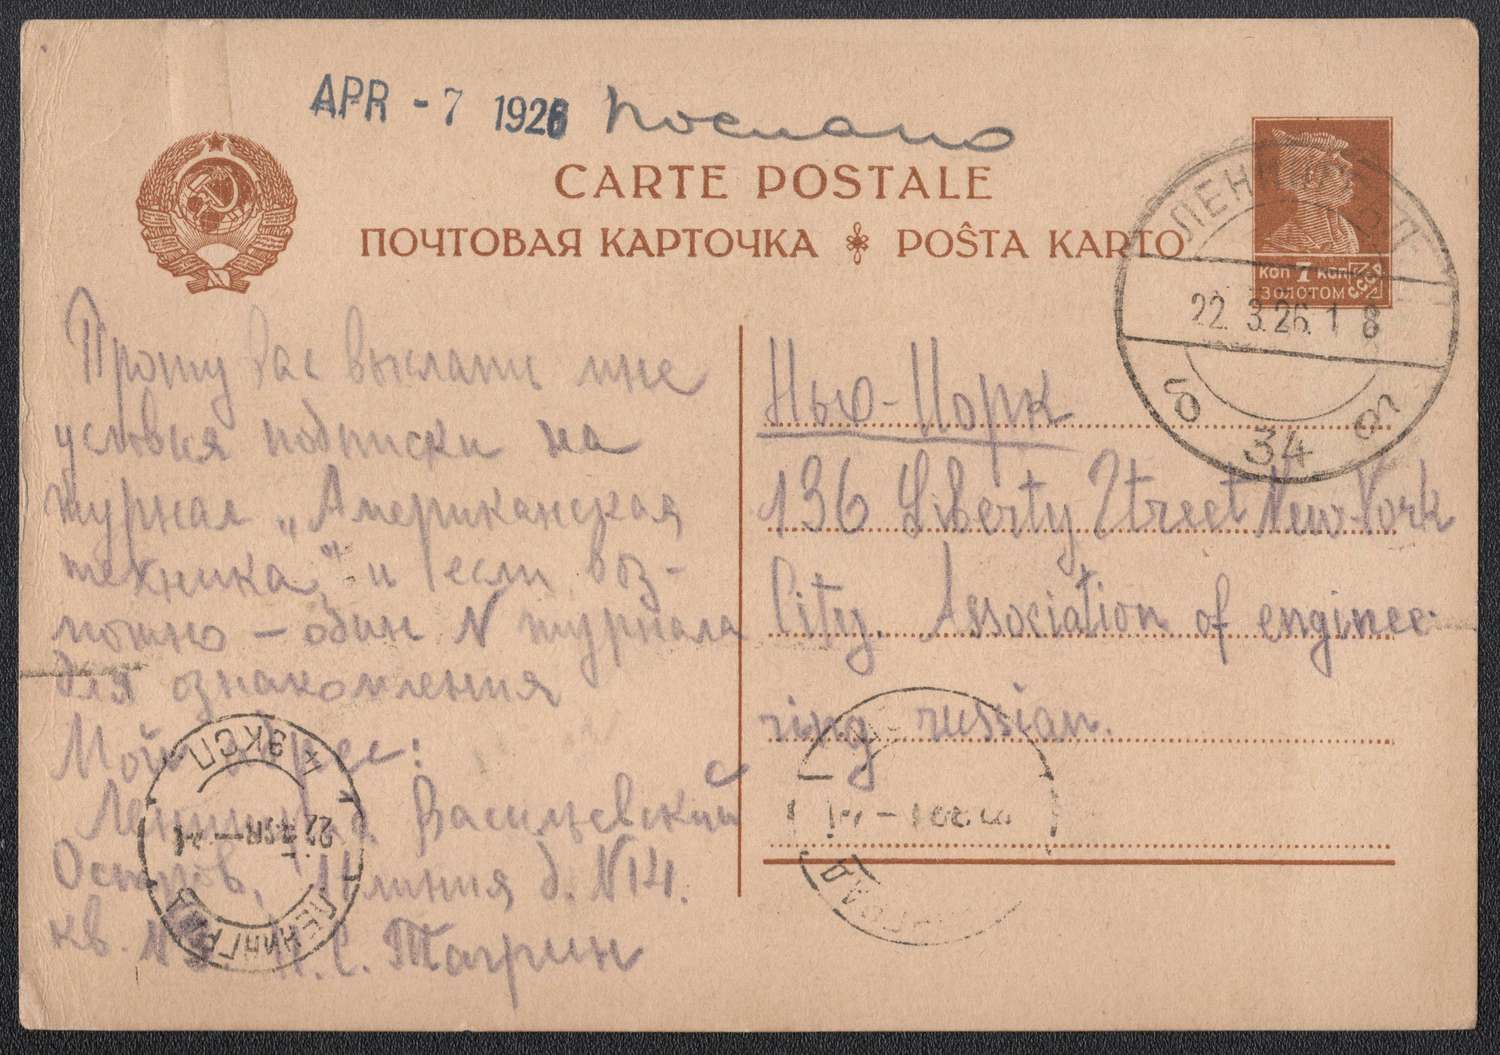 APR - 7 1926 Послано
CARTE POSTALE
ПОЧТОВАЯ КАРТОЧКА POŜTA KARTO
КОП 7 КОП
ЗОЛОТОМ
СССР
ЛЕНИНГРАД
22.3.26.1 8
34
Прошу Вас выслать мне
условия подписки на
журнал „Американская
техника," и если воз-
можно – один N журнала
для ознакомления
Мой адрес:
Ленинград Васильевский
Остров, 11 линия д. N 14.
кв. N 3. И. С. Тагрин
Нью-Йорк
136 Liberty Street New-York
City. Association of enginee-
ring russian.
ЛЕНИНГРАД
ЭКСП